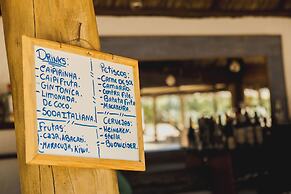 Drinks
- Caipirinha.
- Caipifruta.
- Gin Tonica.
- Limonada
De Coco.
- Soda Italiana.
Frutas
- Caja, Abacaxi,
- Maracuja, Kiwi.
Petiscos:
- Carne de Sol
- Camarão
- Contra Filé.
- Batata Frita
- Macaxeira.
Cervejas:
- Heineken.
- Stella.
- Budweiser